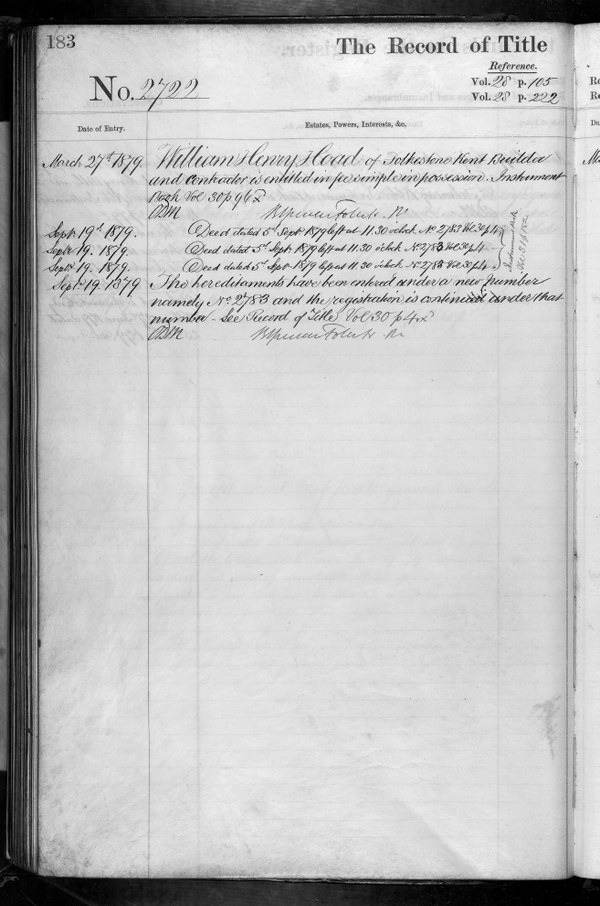 183
The Record of Title
Reference.
No. 2722
Vol. 28 p. 105
Vol. 28 p. 222
Date of Entry.
Estates, Powers, Interests, &c.
March 27th 1879. William Henry Head of Folkestone Kent Builder
and Contractor is entitled in fee simple in possession. Instrument
Book Vol 30 p 96
Sept. 19th 1879. Deed dated 5th Sept. 1879 left at 11.30 o'clock No 2783 Vol 30 p 4
Sept. 19. 1879. Deed dated 5th Sept. 1879 left at 11.30 o'clock No 2783 Vol 30 p 4
Sept. 19. 1879. Deed dated 5th Sept. 1879 left at 11.30 o'clock No 2783 Vol 30 p 4
Sept. 19. 1879 The hereditaments have been entered under a new Number
namely No. 2783 and the registration is continued under that
number - See Record of Title Vol 30 p 4